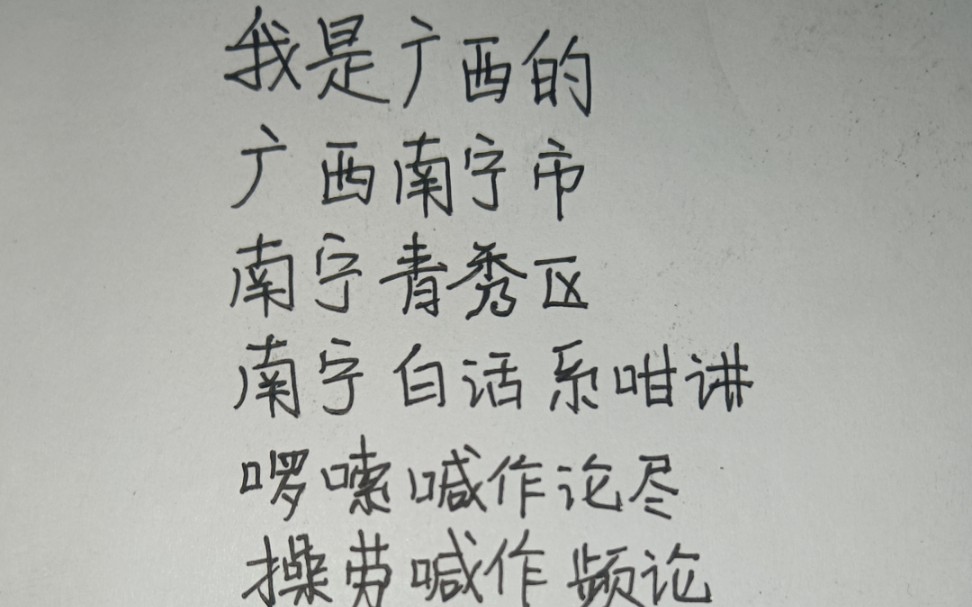 我是广西的
广西南宁市
南宁青秀区
南宁白话系咁讲
啰嗦喊作论尽
操劳喊作频论